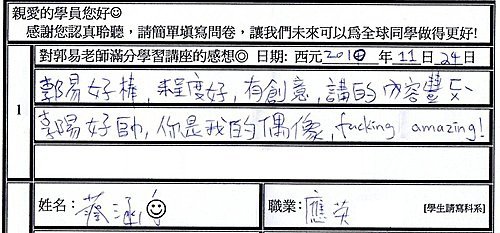 親愛的學員您好☺
感謝您認真聆聽，請簡單填寫問卷，讓我們未來可以為全球同學做得更好!
對郭易老師滿分學習講座的感想◎ 日期: 西元2010年11日24日
1
郭易好棒，程度好，有創意，講的內容豐
郭陽好帥，你是我的偶像，fucking amazing!
姓名: 蔡涵
職業: 應英 [學生請寫科系]